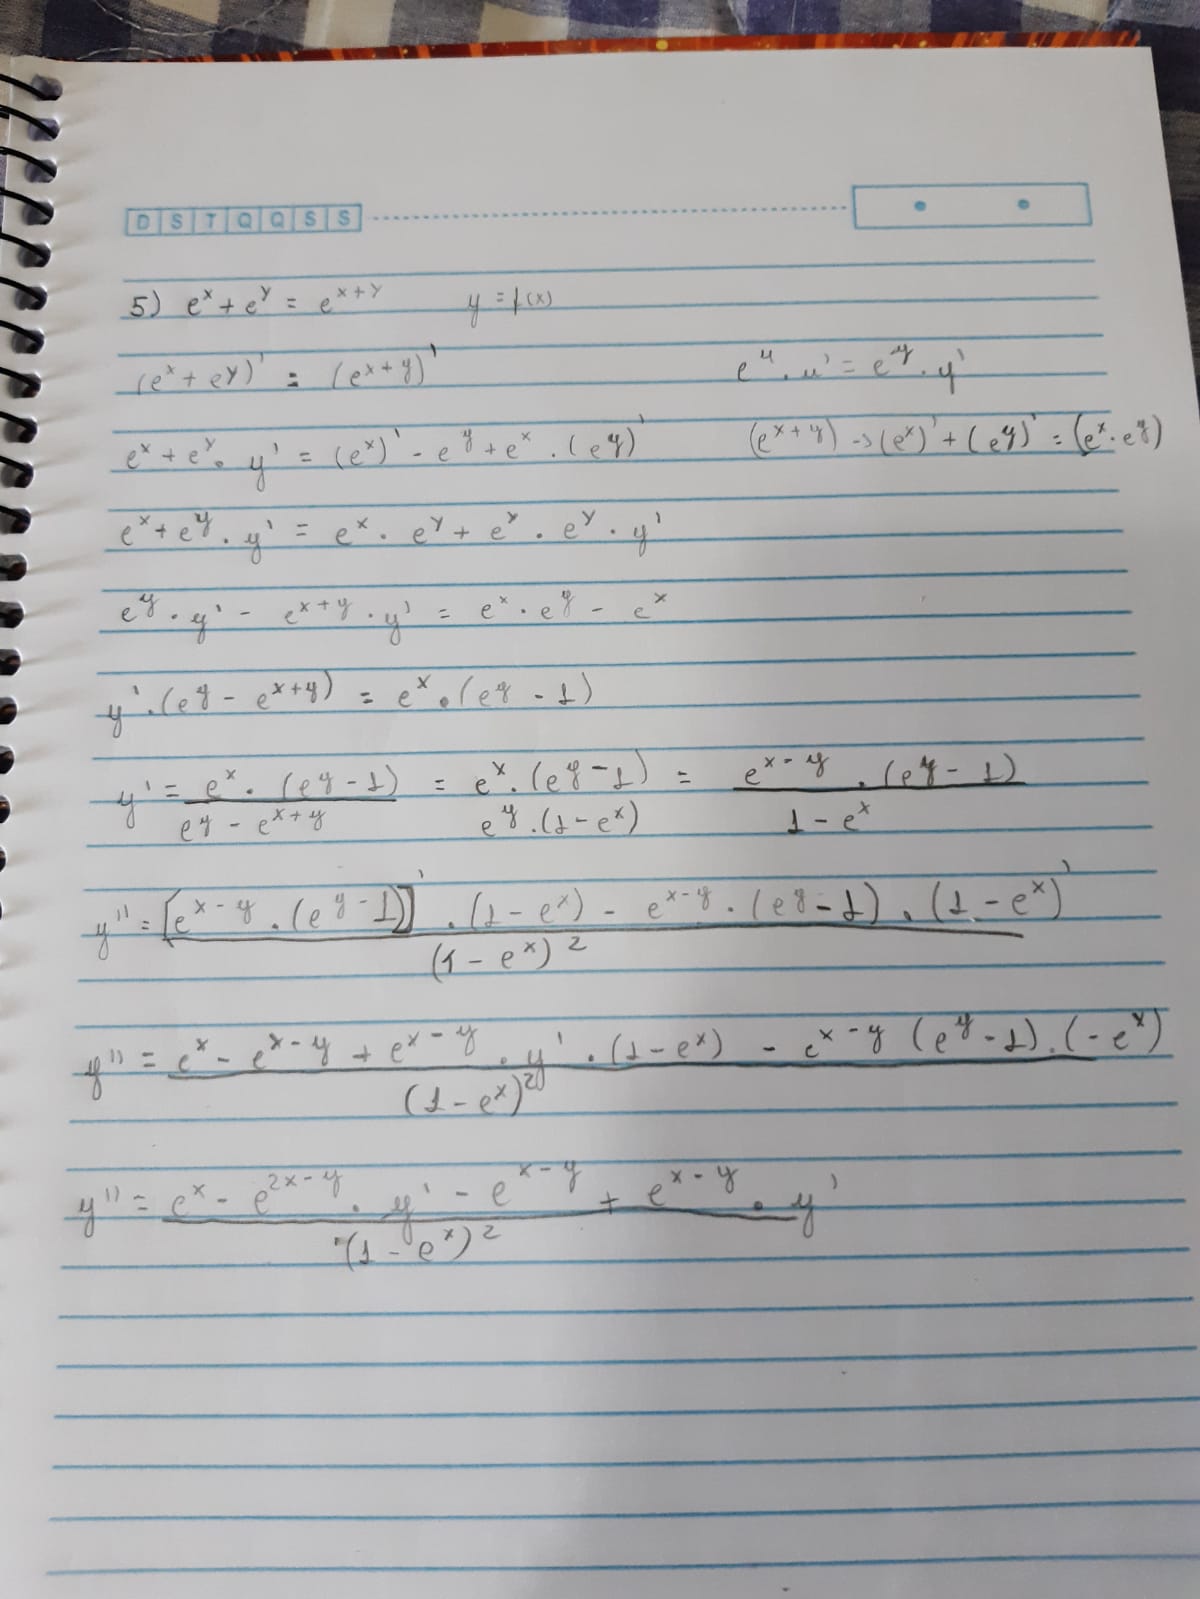 D S T Q Q S S
5) e^x + e^y = e^{x+y} y = f(x)
(e^x + e^y)' = (e^{x+y})' e^u . u' = e^y . y'
e^x + e^y . y' = (e^x)' - e^y + e^x . (e^y)' (e^{x+y}) -> (e^x)' + (e^y)' = (e^x . e^y)
e^x + e^y . y' = e^x . e^y + e^x . e^y . y'
e^y . y' - e^{x+y} . y' = e^x . e^y - e^x
y' . (e^y - e^{x+y}) = e^x . (e^y - 1)
y' = \frac{e^x . (e^y - 1)}{e^y - e^{x+y}} = \frac{e^x . (e^y - 1)}{e^y . (1 - e^x)} = \frac{e^{x-y} . (e^y - 1)}{1 - e^x}
y'' = \frac{[e^{x-y} . (e^y - 1)]' . (1 - e^x) - e^{x-y} . (e^y - 1) . (1 - e^x)'}{(1 - e^x)^2}
y'' = \frac{e^x - e^{x-y} + e^{x-y} . y' . (1 - e^x) - e^{x-y} (e^y - 1) . (-e^x)}{(1 - e^x)^2}
y'' = \frac{e^x - e^{2x-y} . y' - e^{x-y} + e^{x-y} . y'}{(1 - e^x)^2}